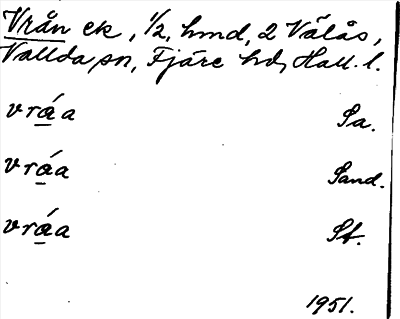 Vrån ek, 1/2, hmd, 2 Välås,
Vallda sn, Fjäre hd, Hall. l.
vrá̱a Sa.
vrá̱a Sand.
vrá̱a St.
1951.